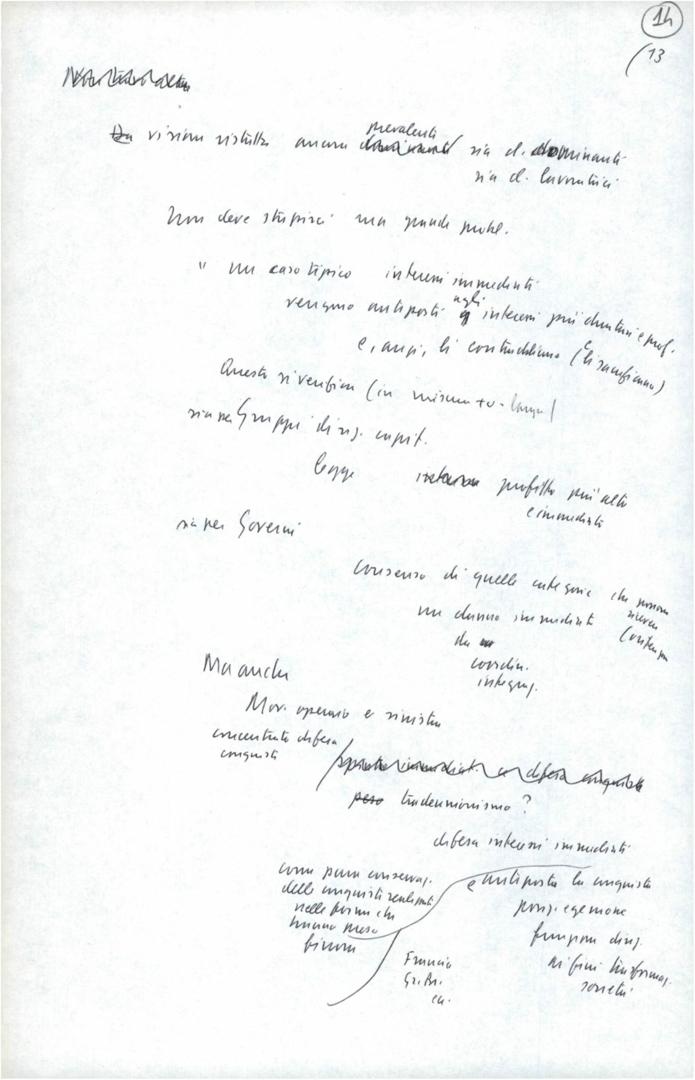 14
(13
visioni ristrette ancora prevalenti sia cl. dominanti
sia cl. lavoratrici
Non deve stupirci ma grande probl.
" un caso tipico interessi immediati
vengono antiposti agli interessi più duraturi e prof.
e, anzi, li contraddicono (e li sacrificano)
Questo si verifica (in misura + o - larga)
sia per Gruppi dirig. capit.
legge profitto più alto
e immediato
sia per Governi
consenso di quelle categorie che possono
ricevere
un danno immediato
da
coordin.
integraz.
Ma anche
Mov. operaio e sinistra
concentrata difesa
conquiste
tradeunionismo?
difesa interessi immediati
come pura conservaz.
delle conquiste realizzate
nelle forme che
hanno preso
finora
e antiposta la conquista
posiz. egemone
funzioni dirig.
ai fini trasformaz.
società
Francia
Gr. Br.
ecc.